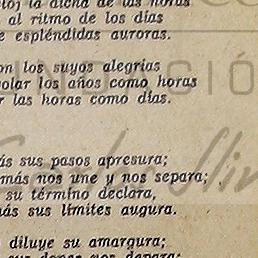 la dicha de las horas
al ritmo de los días
espléndidas auroras.
los suyos alegrías
los años como horas
las horas como días.
sus pasos apresura;
más nos une y nos separa;
su término declara,
sus límites augura.
diluye su amargura;
sus dones nos depara;